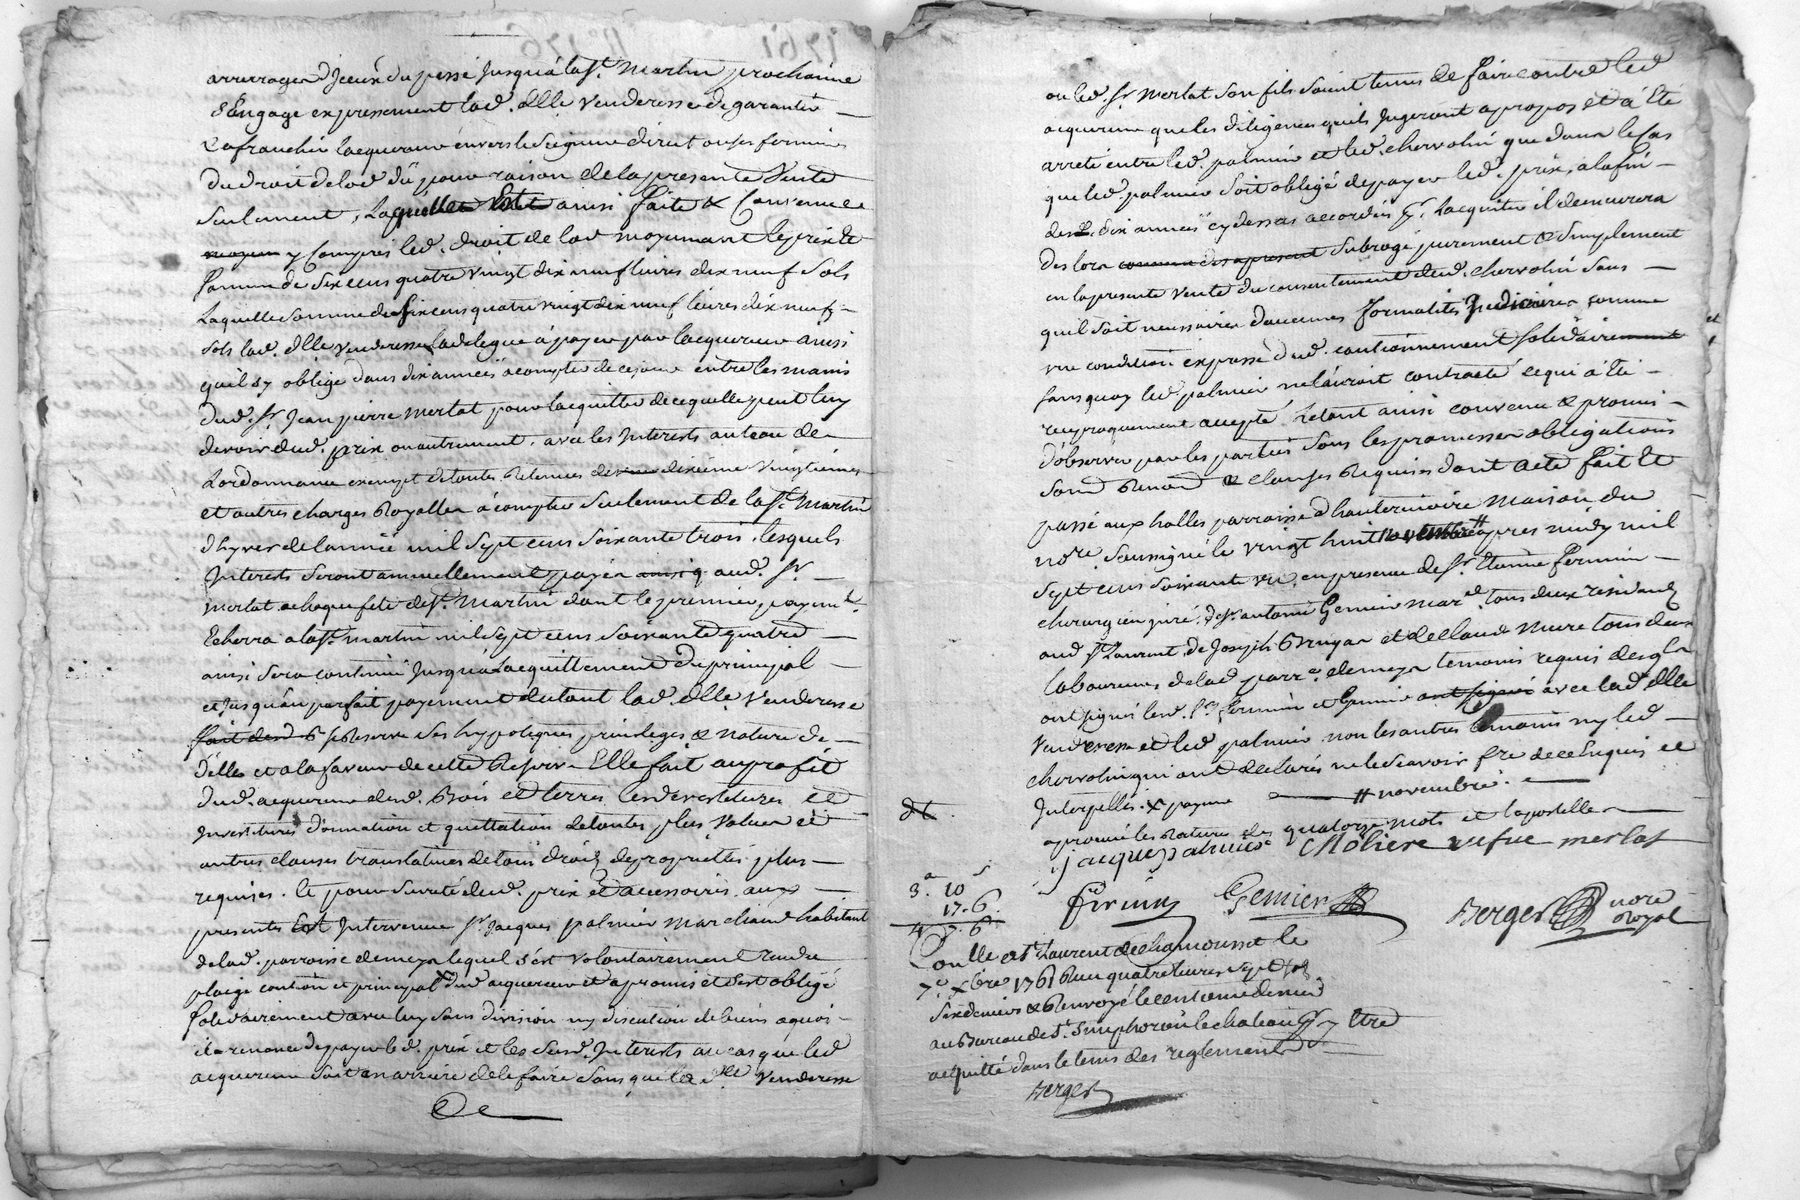 arrerages d'jceux du passé jusqu'a la st. Martin prochaine
s'Engage expressement lad. dlle venderesse de garantir
& afranchir lacquereur envers le seigneur direct ou ses fermiers
du droit de lod dû pour raison de la presente Vente
seulement, laquelle Est ainsi faite & Convenue
y Compris led. droit de lod moyenant le prix et
somme de six cens quatre vingt dix neuf livres dix neuf sols
laquelle somme de six cens quatre vingt dix neuf livres dix neuf
sols lad. dlle venderesse la delegue à payer par lacquereur ainsi
qu'il sy oblige dans dix années a compter de ce jour entre les mains
dud. sr. Jean pierre merlat pour lacquitter de ce quelle peut luy
devoir dud. prix ou autrement, avec les Interets au taux de
Lordonnance exempt de toutes Retenues de dixieme vingtiemes
et autres charges Royalles à compter seulement de la st. Martin
dhyver de lannée mil sept cens soixante trois, lesquels
Interets seront annuellement payés aud. sr.
merlat a chaque fete de st. Martin dont le premier payemt.
Echerra a la st. martin mil sept cens soixante quatre
ainsi sera continué Jusqu'a Lacquittement du principal
et jusqu'au parfait payement du tout lad. dlle Venderesse
se Reserve ses hypoteques privileges & nature de
d'elles et a la faveur de cette Reserve Elle fait au profit
dud. acquereur desd. Bois et terres les devestitures et
Investitures donnation et quittation de toutes plus Values et
autres clauses translatives de tous droits de proprietté plus
requises. Et pour sureté dud. prix et accessoires aux
presentes Est Intervenu sr. Jacques palmier marchand habitant
de lad. parroisse de meys lequel s'est volontairement rendu
pleige caution et principal dud acquereur et a promis et s'est obligé
solidairement avec luy sans division ny discution de biens a quoi
il a renoncé de payer led. prix et les susd. Interets au cas que led
acquereur soit en arriere de le faire sans que la d. lle Venderesse
ou led. sr. merlat son fils soient tenus de faire contre led
acquereur que les diligences quils Jugeront a propos et à Eté
arreté entre led. palmier et led. chervolin que dans le Cas
que led. palmier soit obligé de payer led. prix, a la fin
des dix années cy dessus accordées pr. Lacquitter il demeurera
des lors subrogé purement & simplement
en la presente vente du consentement dud. chervolin sans
quil soit necessaire daucunes formalités Judiciaires comme
une condition expresse dud. cautionnement solidaire
sans quoy led palmier ne l'auroit contracté ce qui à Eté
reciproquement accepté. Letout ainsi convenu & promis
d'observer par les parties sous les promesses obligations
soumd Renond & clauses Requises dont acte fait et
passé aux halles parroisse d'hauterivoire maison du
nore. soussigné le vingt huit apres midy mil
sept cens soixante un, en presence de sr. Etienne fermin
chirurgien juré, de sr. antoine Gemier mard. tous deux residants
aud st Laurent de Joseph Bruyas et de Claude mure tous deux
laboureurs de lad parr.e de meys temoins requis desqls
ont signés lesd. srs. fermin et Gemier avec lad dlle
Venderesse et led palmier non les autres temoins ny led
chervolin qui ont declarés ne le scavoir fre de ce Enquis et
Interpellés. x payeur # novembre.
approuvé les Rature des quatorze mots et lapostille
jacques palmier C Moliere vefve merlat
3.a 10 s
17. 6.
4. 7. 6
fermin Gemier Berger nore Royal
Conlle a st Laurent de chamousset le
7e. xbre 1761 Reçu quatre livres sept sols
six deniers & Renvoyé le centieme denier
au Bureau de st. Simphorien le chateau pr. y Etre
acquitté dans le tems des reglements
Berger